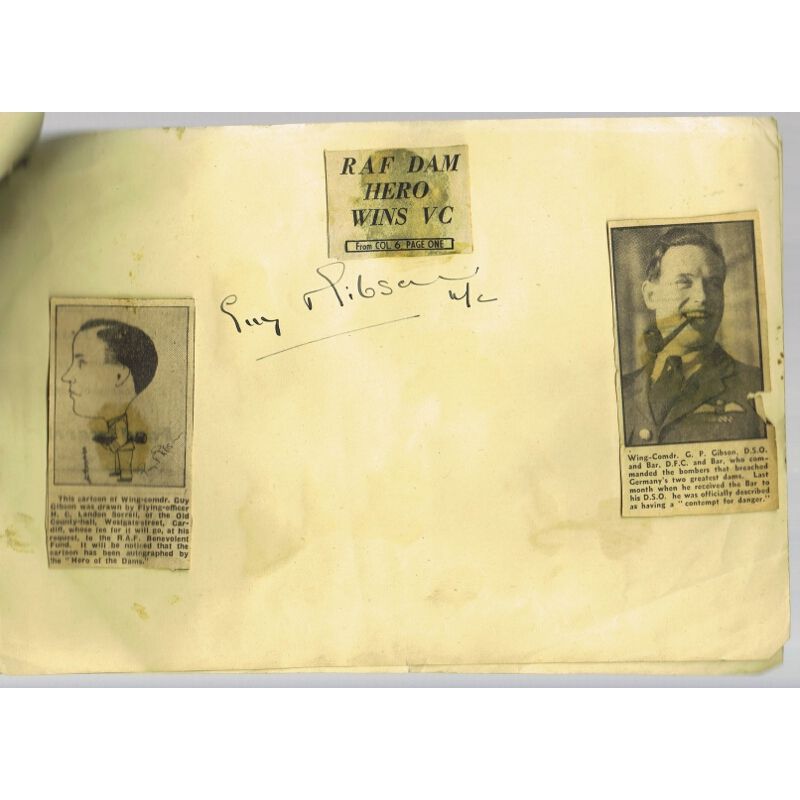 RAF DAM
HERO
WINS VC
From COL. 6, PAGE ONE
Guy Gibson W/C
This cartoon of Wing-comdr. Guy
Gibson was drawn by Flying-officer
H. C. Landon Sorrell, of the Old
County-hall, Westgate-street, Car-
diff, whose fee for it will go, at his
request, to the R.A.F. Benevolent
Fund. It will be noticed that the
cartoon has been autographed by
the "Hero of the Dams."
Wing-Comdr. G. P. Gibson, D.S.O.
and Bar, D.F.C. and Bar, who com-
manded the bombers that breached
Germany's two greatest dams. Last
month when he received the Bar to
his D.S.O. he was officially described
as having a "contempt for danger."